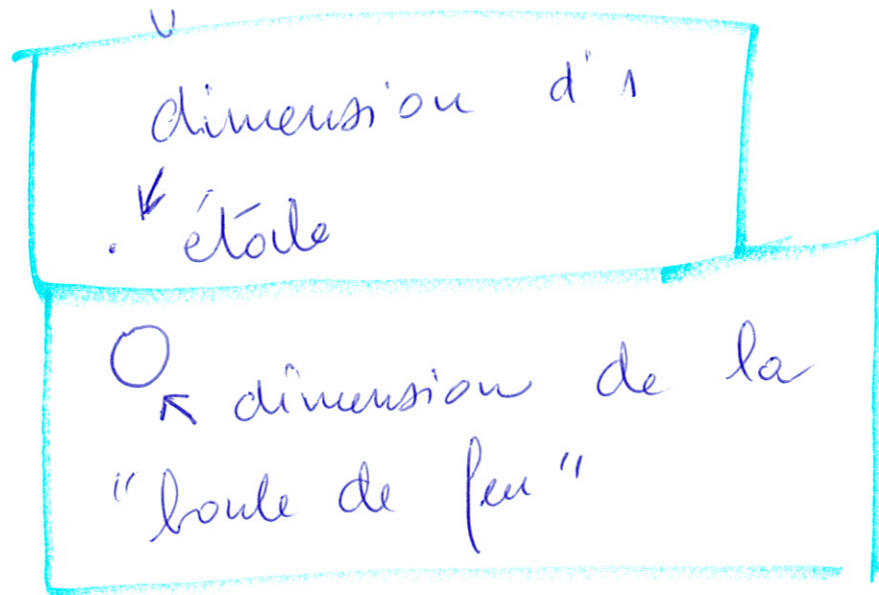 dimension d'1
étoile
dimension de la
"boule de feu"